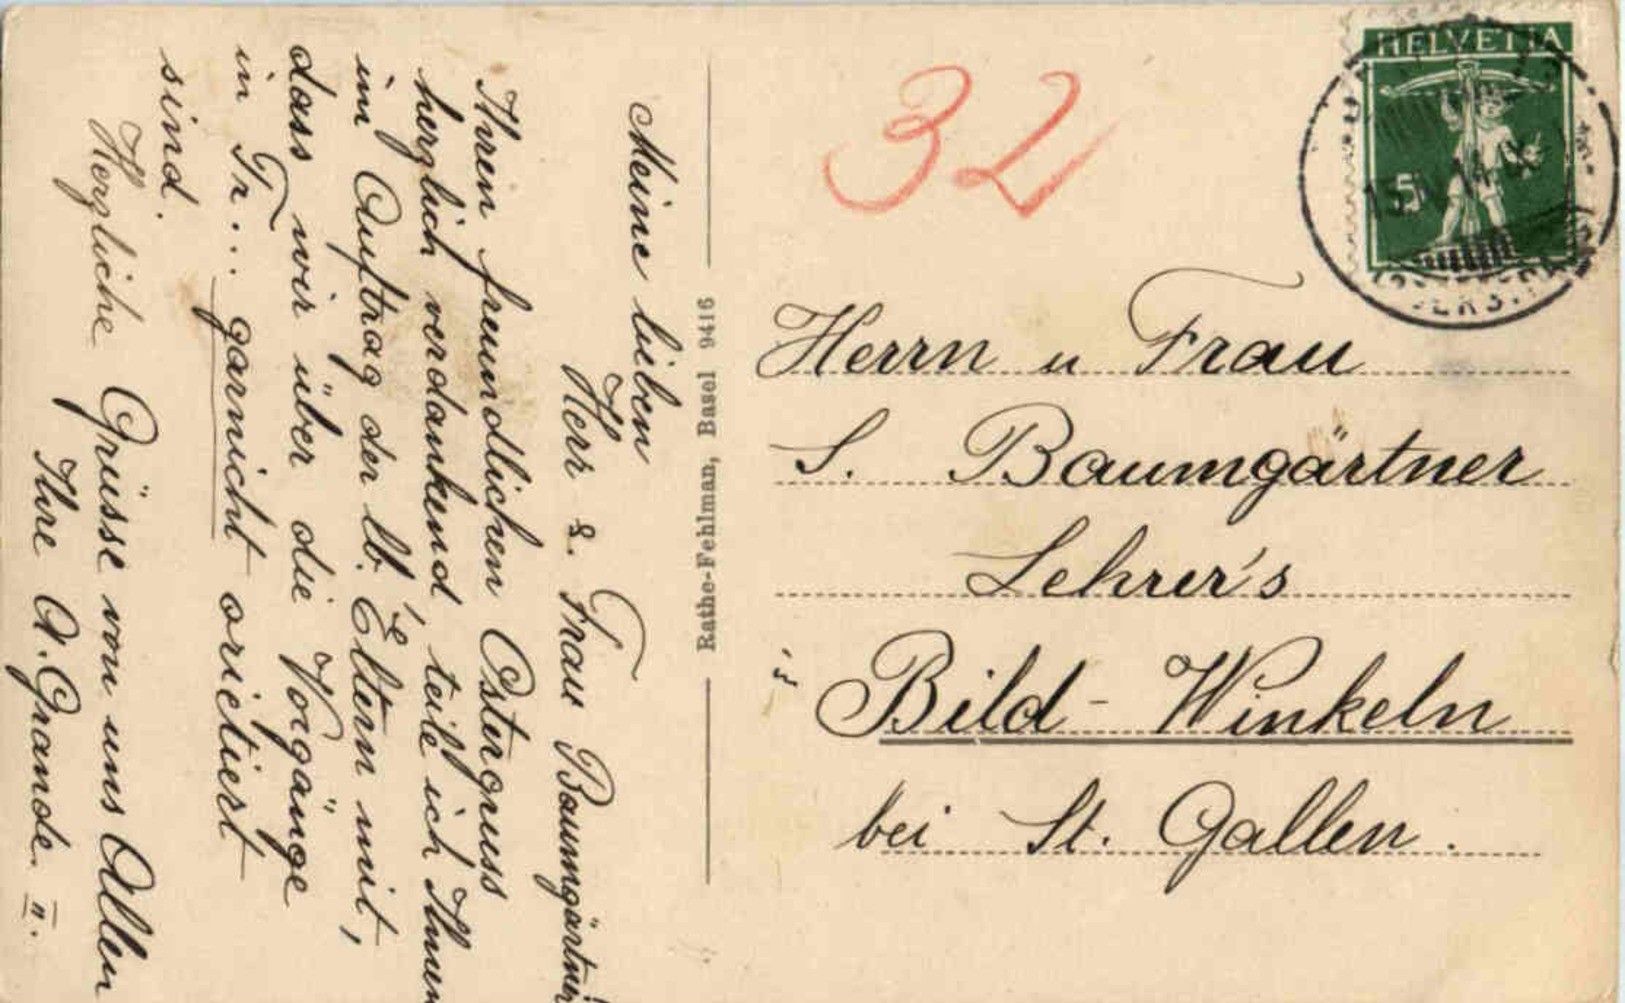 Meine lieben
Herr & Frau Baumgärtner
Ihren freundlichen Ostergruss
herzlich verdankend, teile ich Ihnen
im Auftrag der lb. Eltern mit,
dass wir über die Vorgänge
in Fr... garnicht orietiert
sind.
Herzliche Grüsse von uns Allen
Ihre A. Grande. II.
Rathe-Fehlman, Basel 9416
32
HELVETIA
5
15.IV.14
Herrn u Frau
S. Baumgärtner
Lehrer's
Bild - Winkeln
bei St. Gallen.